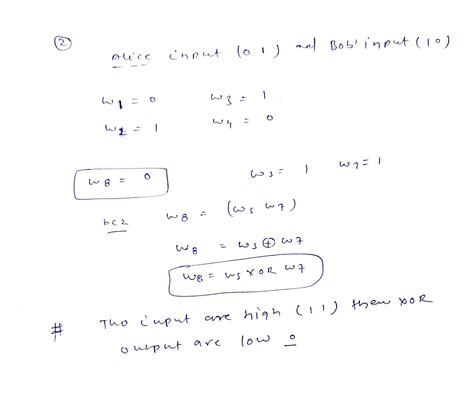 ②
Alice input (0 1) and Bob' input (1 0)
w1 = 0 w3 = 1
w2 = 1 w4 = 0
w8 = 0 w5 = 1 w7 = 1
bcz w8 = (w5 w7)
w8 = w5 ⊕ w7
w8 = w5 XOR w7
# Two input are high (1 1) then XOR
output are low 0